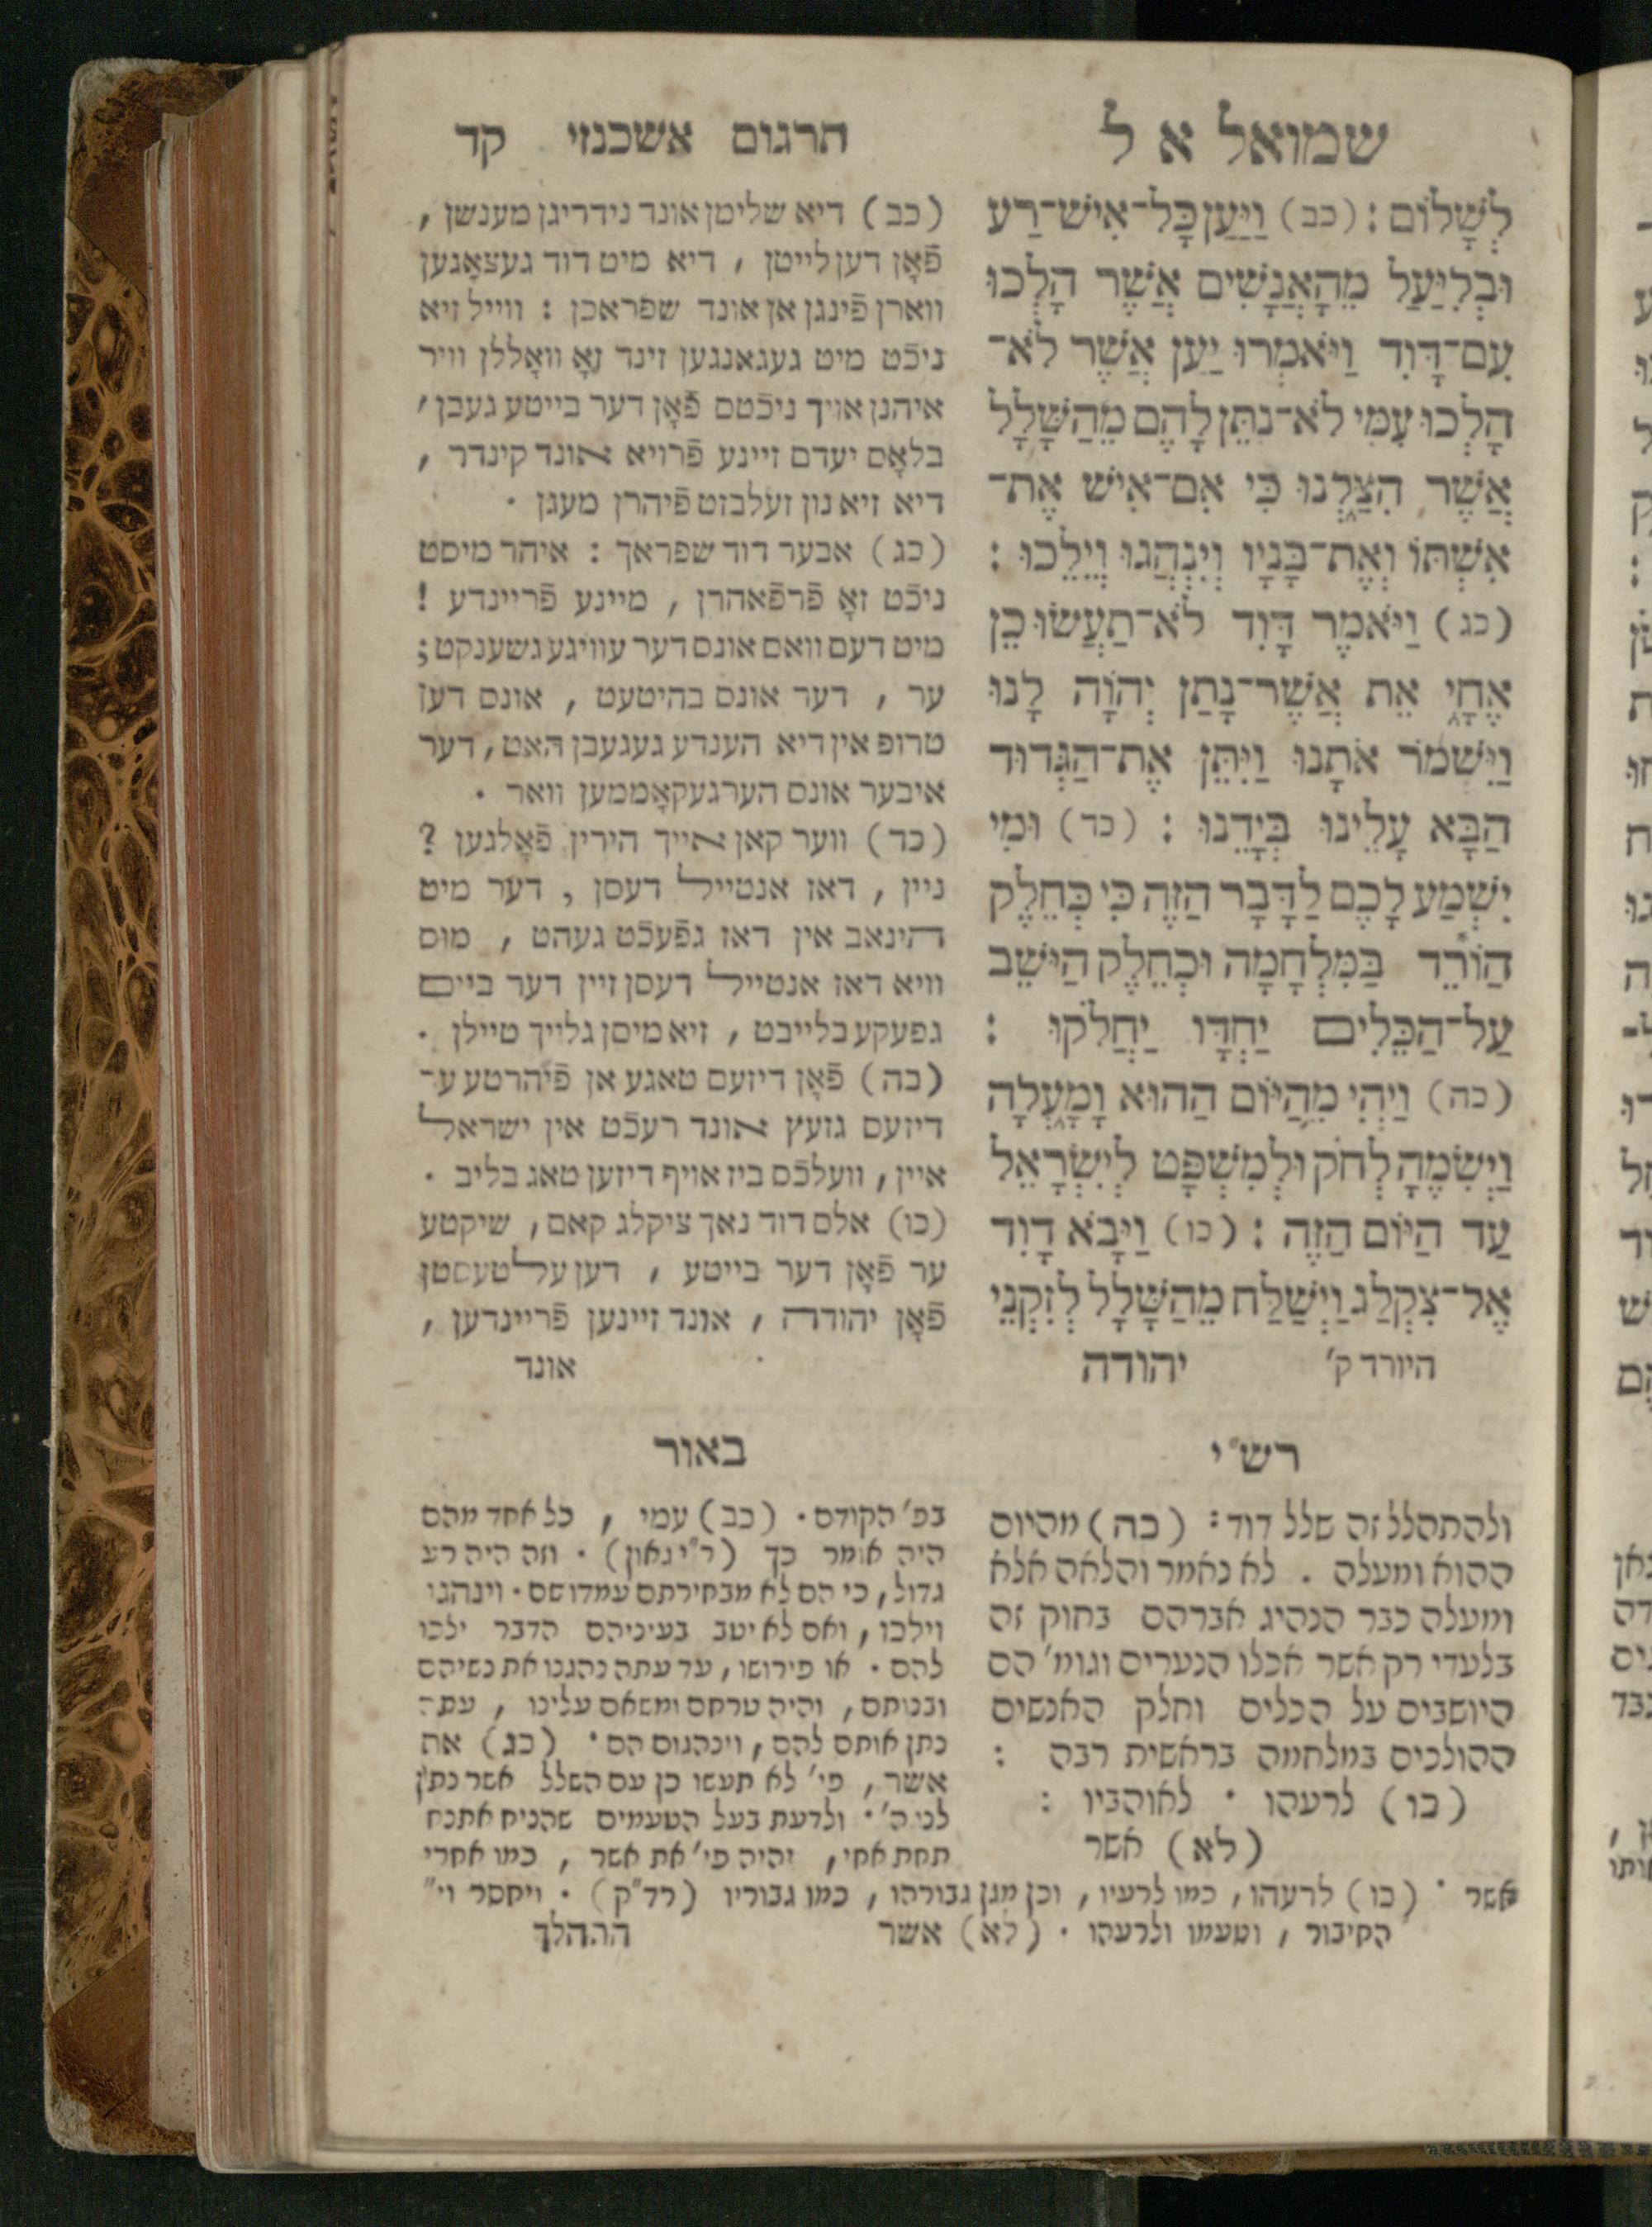 שמואל א ל
לְשָׁלוֹם : (כב) וַיַּעַן כָּל־אִישׁ־רַע
וּבְלִיַּעַל מֵהָאֲנָשִׁים אֲשֶׁר הָלְכוּ
עִם־דָּוִד וַיֹּאמְרוּ יַעַן אֲשֶׁר לֹא־
הָלְכוּ עִמִּי לֹא־נִתֵּן לָהֶם מֵהַשָּׁלָל
אֲשֶׁר הִצַּלְנוּ כִּי אִם־אִישׁ אֶת־
אִשְׁתּוֹ וְאֶת־בָּנָיו וְיִנְהֲגוּ וְיֵלֵכוּ :
(כג) וַיֹּאמֶר דָּוִד לֹא־תַעֲשׂוּ כֵן
אֶחָי אֵת אֲשֶׁר־נָתַן יְהוָֹה לָנוּ
וַיִּשְׁמֹר אֹתָנוּ וַיִּתֵּן אֶת־הַגְּדוּד
הַבָּא עָלֵינוּ בְּיָדֵנוּ : (כד) וּמִי
יִשְׁמַע לָכֶם לַדָּבָר הַזֶּה כִּי כְּחֵלֶק
הַוֹּרֵד בַּמִּלְחָמָה וּכְחֵלֶק הַיֹּשֵׁב
עַל־הַכֵּלִים יַחְדָּו יַחֲלֹקוּ :
(כה) וַיְהִי מֵהַיּוֹם הַהוּא וָמָעְלָה
וַיְשִׂמֶהָ לְחֹק וּלְמִשְׁפָּט לְיִשְׂרָאֵל
עַד הַיּוֹם הַזֶּה : (כו) וַיָּבֹא דָוִד
אֶל־צִקְלַג וַיְשַׁלַּח מֵהַשָּׁלָל לְזִקְנֵי
היורד ק' יהודה
תרגום אשכנזי קד
(כב) דיא שליטן אונד נידריגן מענשן ,
פֿאָן דען לייטן , דיא מיט דוד געצאָגען
ווארן פֿינגן אן אונד שפראכן : ווייל זיא
ניכֿט מיט געגאנגען זינד זאָ וואָללן וויר
איהנן אויך ניכֿטס פֿאָן דער בייטע געבן ,
בלאָס יעדם זיינע פֿרויא אונד קינדר ,
דיא זיא נון זעלבזט פֿיהרן מעגן .
(כג) אבער דוד שפראך : איהר מיסט
ניכֿט זאָ פֿרפֿאהרן , מיינע פֿריינדע !
מיט דעם וואס אונס דער עוויגע גשענקט ;
ער , דער אונס בהיטעט , אונס דען
טרופ אין דיא הענדע געגעבן האט , דער
איבער אונס הערגעקאָממען וואר .
(כד) ווער קאן אייך הירין פֿאָלגען ?
ניין , דאז אנטייל דעסן , דער מיט
הינאב אין דאז גפֿעכֿט געהט , מוס
וויא דאז אנטייל דעסן זיין דער ביים
גפעקע בלייבט , זיא מיסן גלייך טיילן .
(כה) פֿאָן דיזעם טאגע אן פֿיהרטע ער
דיזעס גזעץ אונד רעכֿט אין ישראל
איין , וועלכֿס ביז אויף דיזען טאג בליב .
(כו) אלס דוד נאך ציקלג קאם , שיקטע
ער פֿאָן דער בייטע , דען עלטעסטן
פֿאָן יהודה , אונד זיינען פֿריינדען ,
אונד
רש"י
ולהתהלל זה שלל דוד : (כה) מהיום
ההוא ומעלה . לא נאמר והלאה אלא
ומעלה כבר הנהיג אברהם בחוק זה
בלעדי רק אשר אכלו הנערים וגומ' הם
היושבים על הכלים וחלק האנשים
ההולכים במלחמה בראשית רבה :
(כו) לרעהו . לאוהביו :
(לא) אשר
באור
בפ' הקודם . (כב) עמי , כל אחד מהם
היה אומר כך (ר"י גאון) . וזה היה רע
גדול , כי הם לא מבחירתם עמדו שם . וינהגו
וילכו , ואם לא יטב בעיניהם הדבר ילכו
להם . או פירושו , עד עתה נהגנו את נשיהם
ובנותם , והיה טרחם ומשאם עלינו , עתה
נתן אותם להם , וינהגום הם . (כג) את
אשר , פי' לא תעשו כן עם השלל אשר נתן
לנו ה' . ולדעת בעל הטעמים שהניח אתנח
תחת אחי , יהיה פי' את אשר , כמו אחרי
אשר . (כו) לרעהו , כמו לרעיו , וכן מגן גבורהו , כמו גבוריו (רד"ק) . ויחסר וי"
החיבור , וטעמו ולרעהו . (לא) אשר התהלך